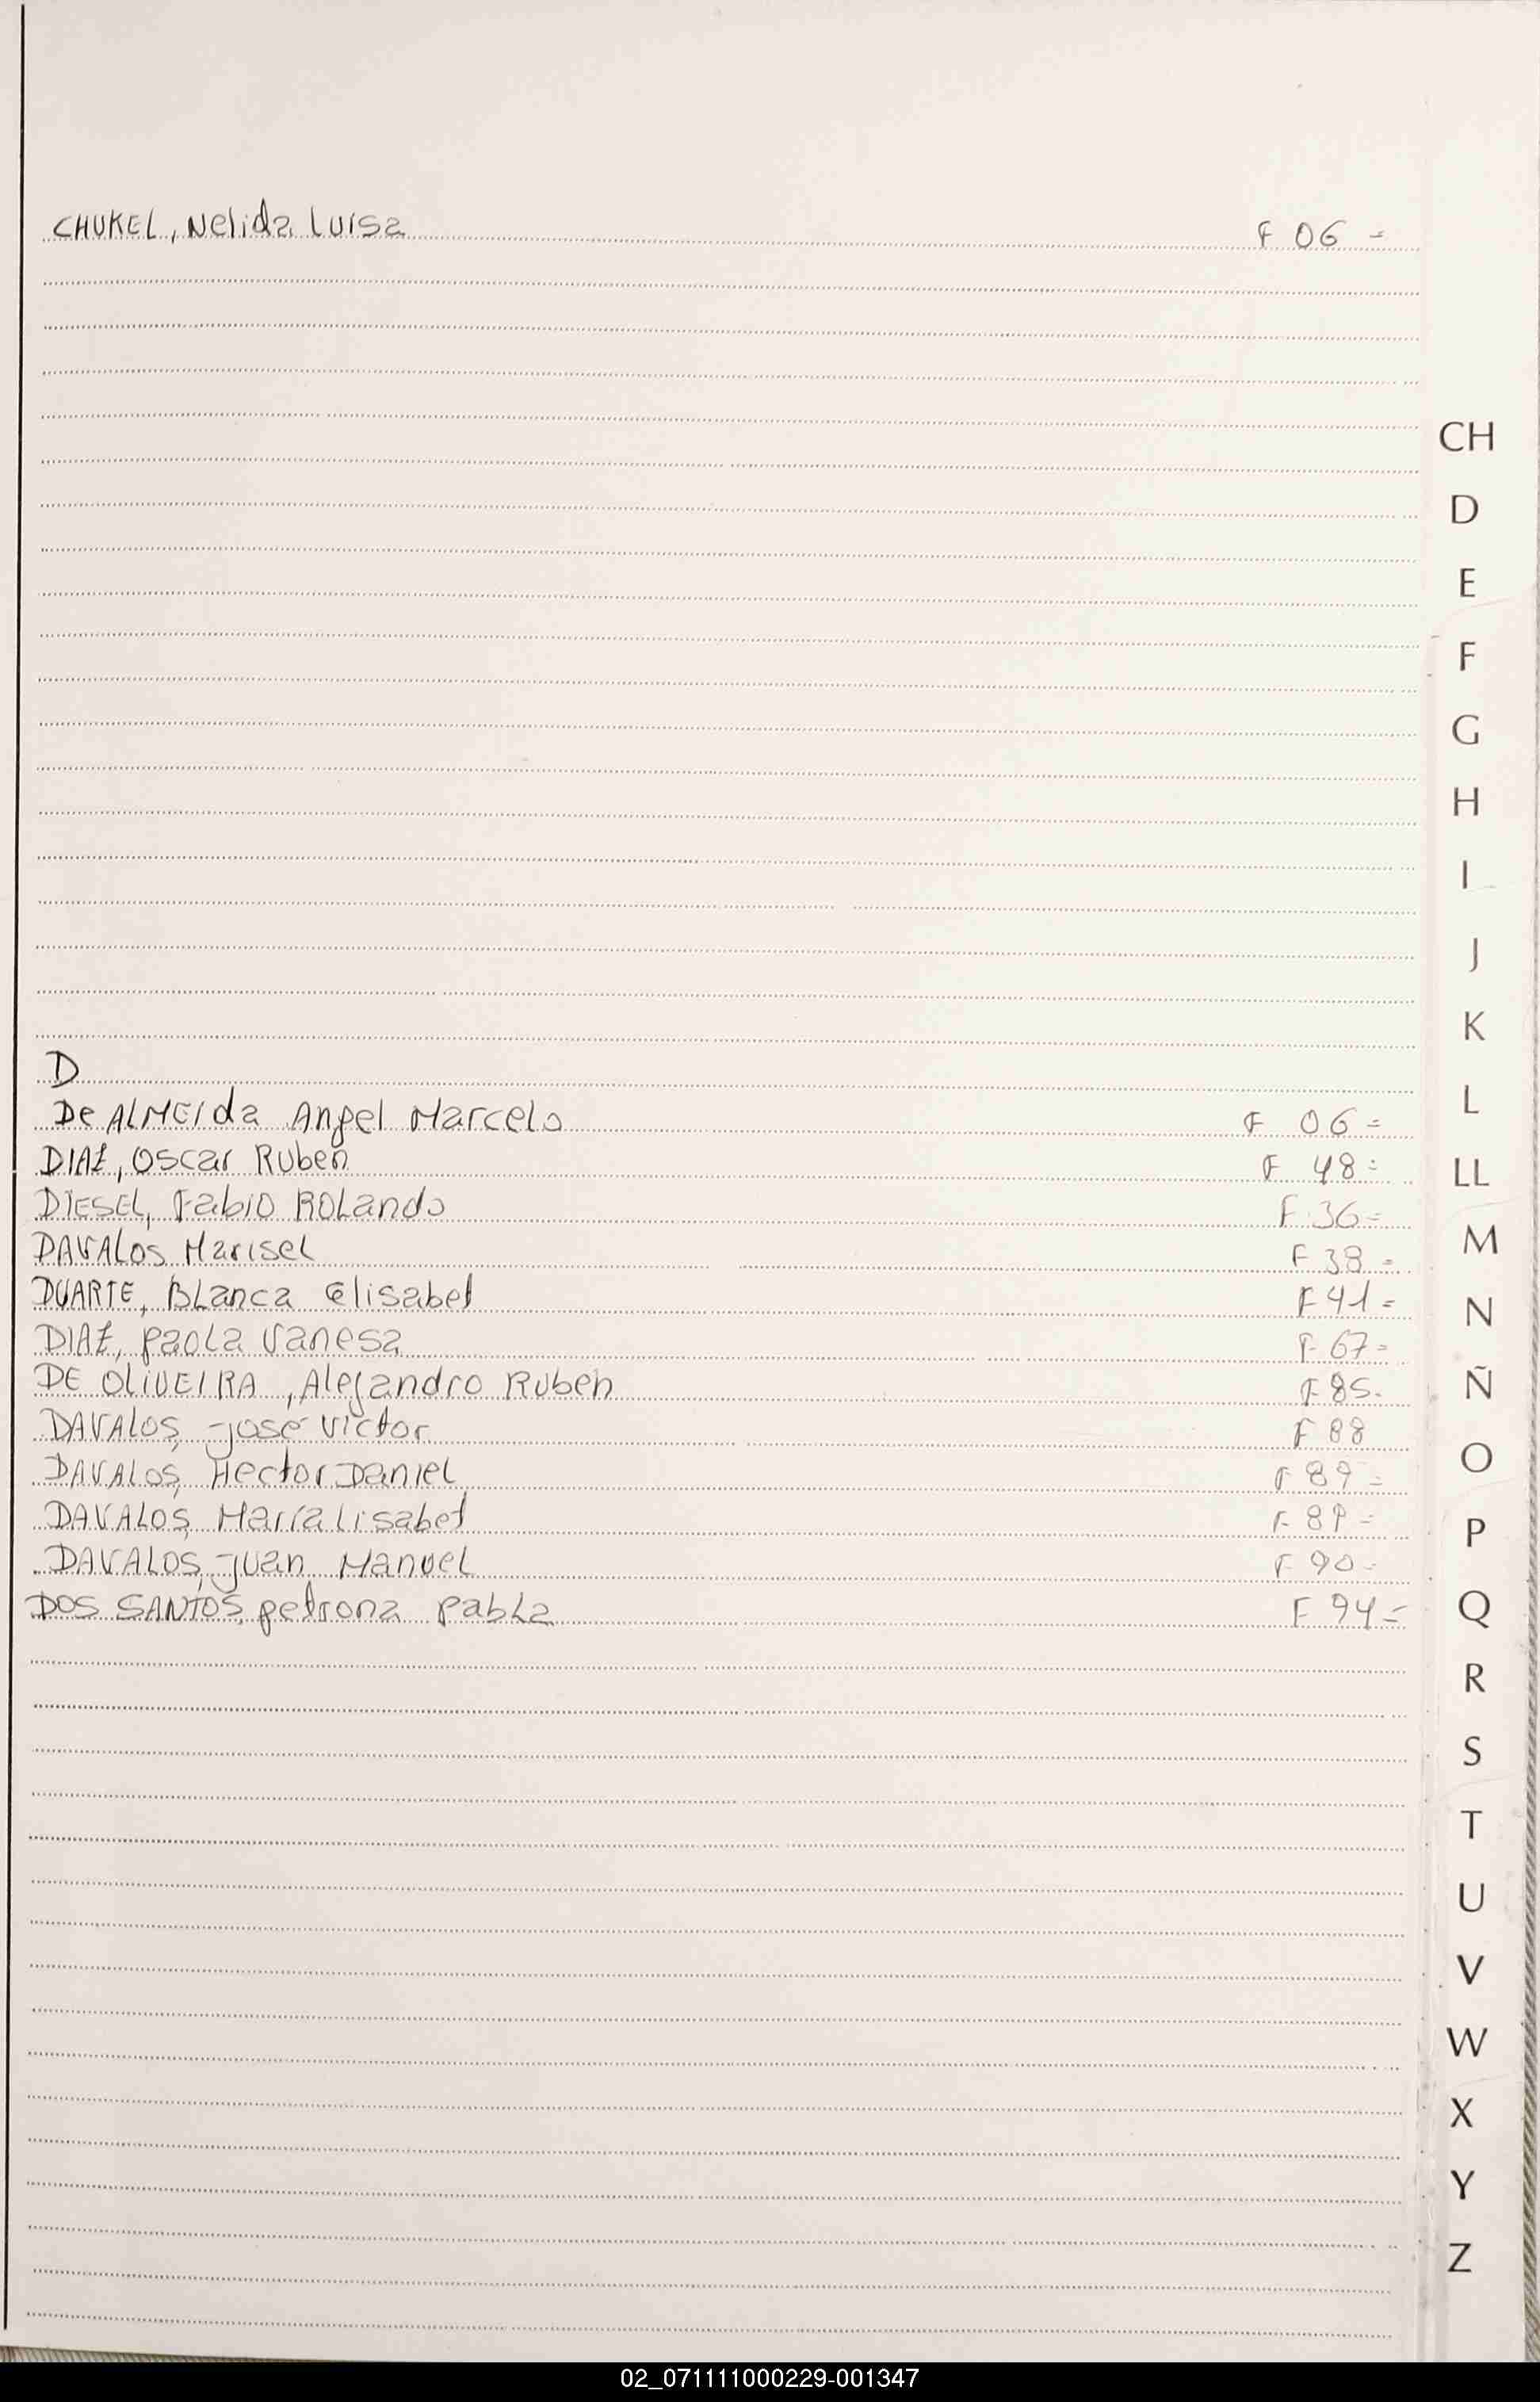 CHUKEL, Nelida Luisa F 06 =
CH
D
E
F
G
H
I
J
K
D
L
De ALMEIda Angel Marcelo F 06 =
DIAZ, Oscar Ruben F 48 =
LL
DIESEL, Fabio ROLando F 36 =
M
DAVALOS Marisel F 38 =
DUARTE, BLanca Elisabet F 41 =
N
DIAZ, paola Vanesa F 67 =
DE OLIVEIRA, Alejandro Ruben F 85.
Ñ
DAVALOS, José Victor F 88
O
DAVALOS, Hector Daniel F 89 =
DAVALOS, María Lisabet F 89 =
P
DAVALOS, Juan Manuel F 90 =
DOS SANTOS, petrona PabLa F 94 =
Q
R
S
T
U
V
W
X
Y
Z
02_071111000229-001347